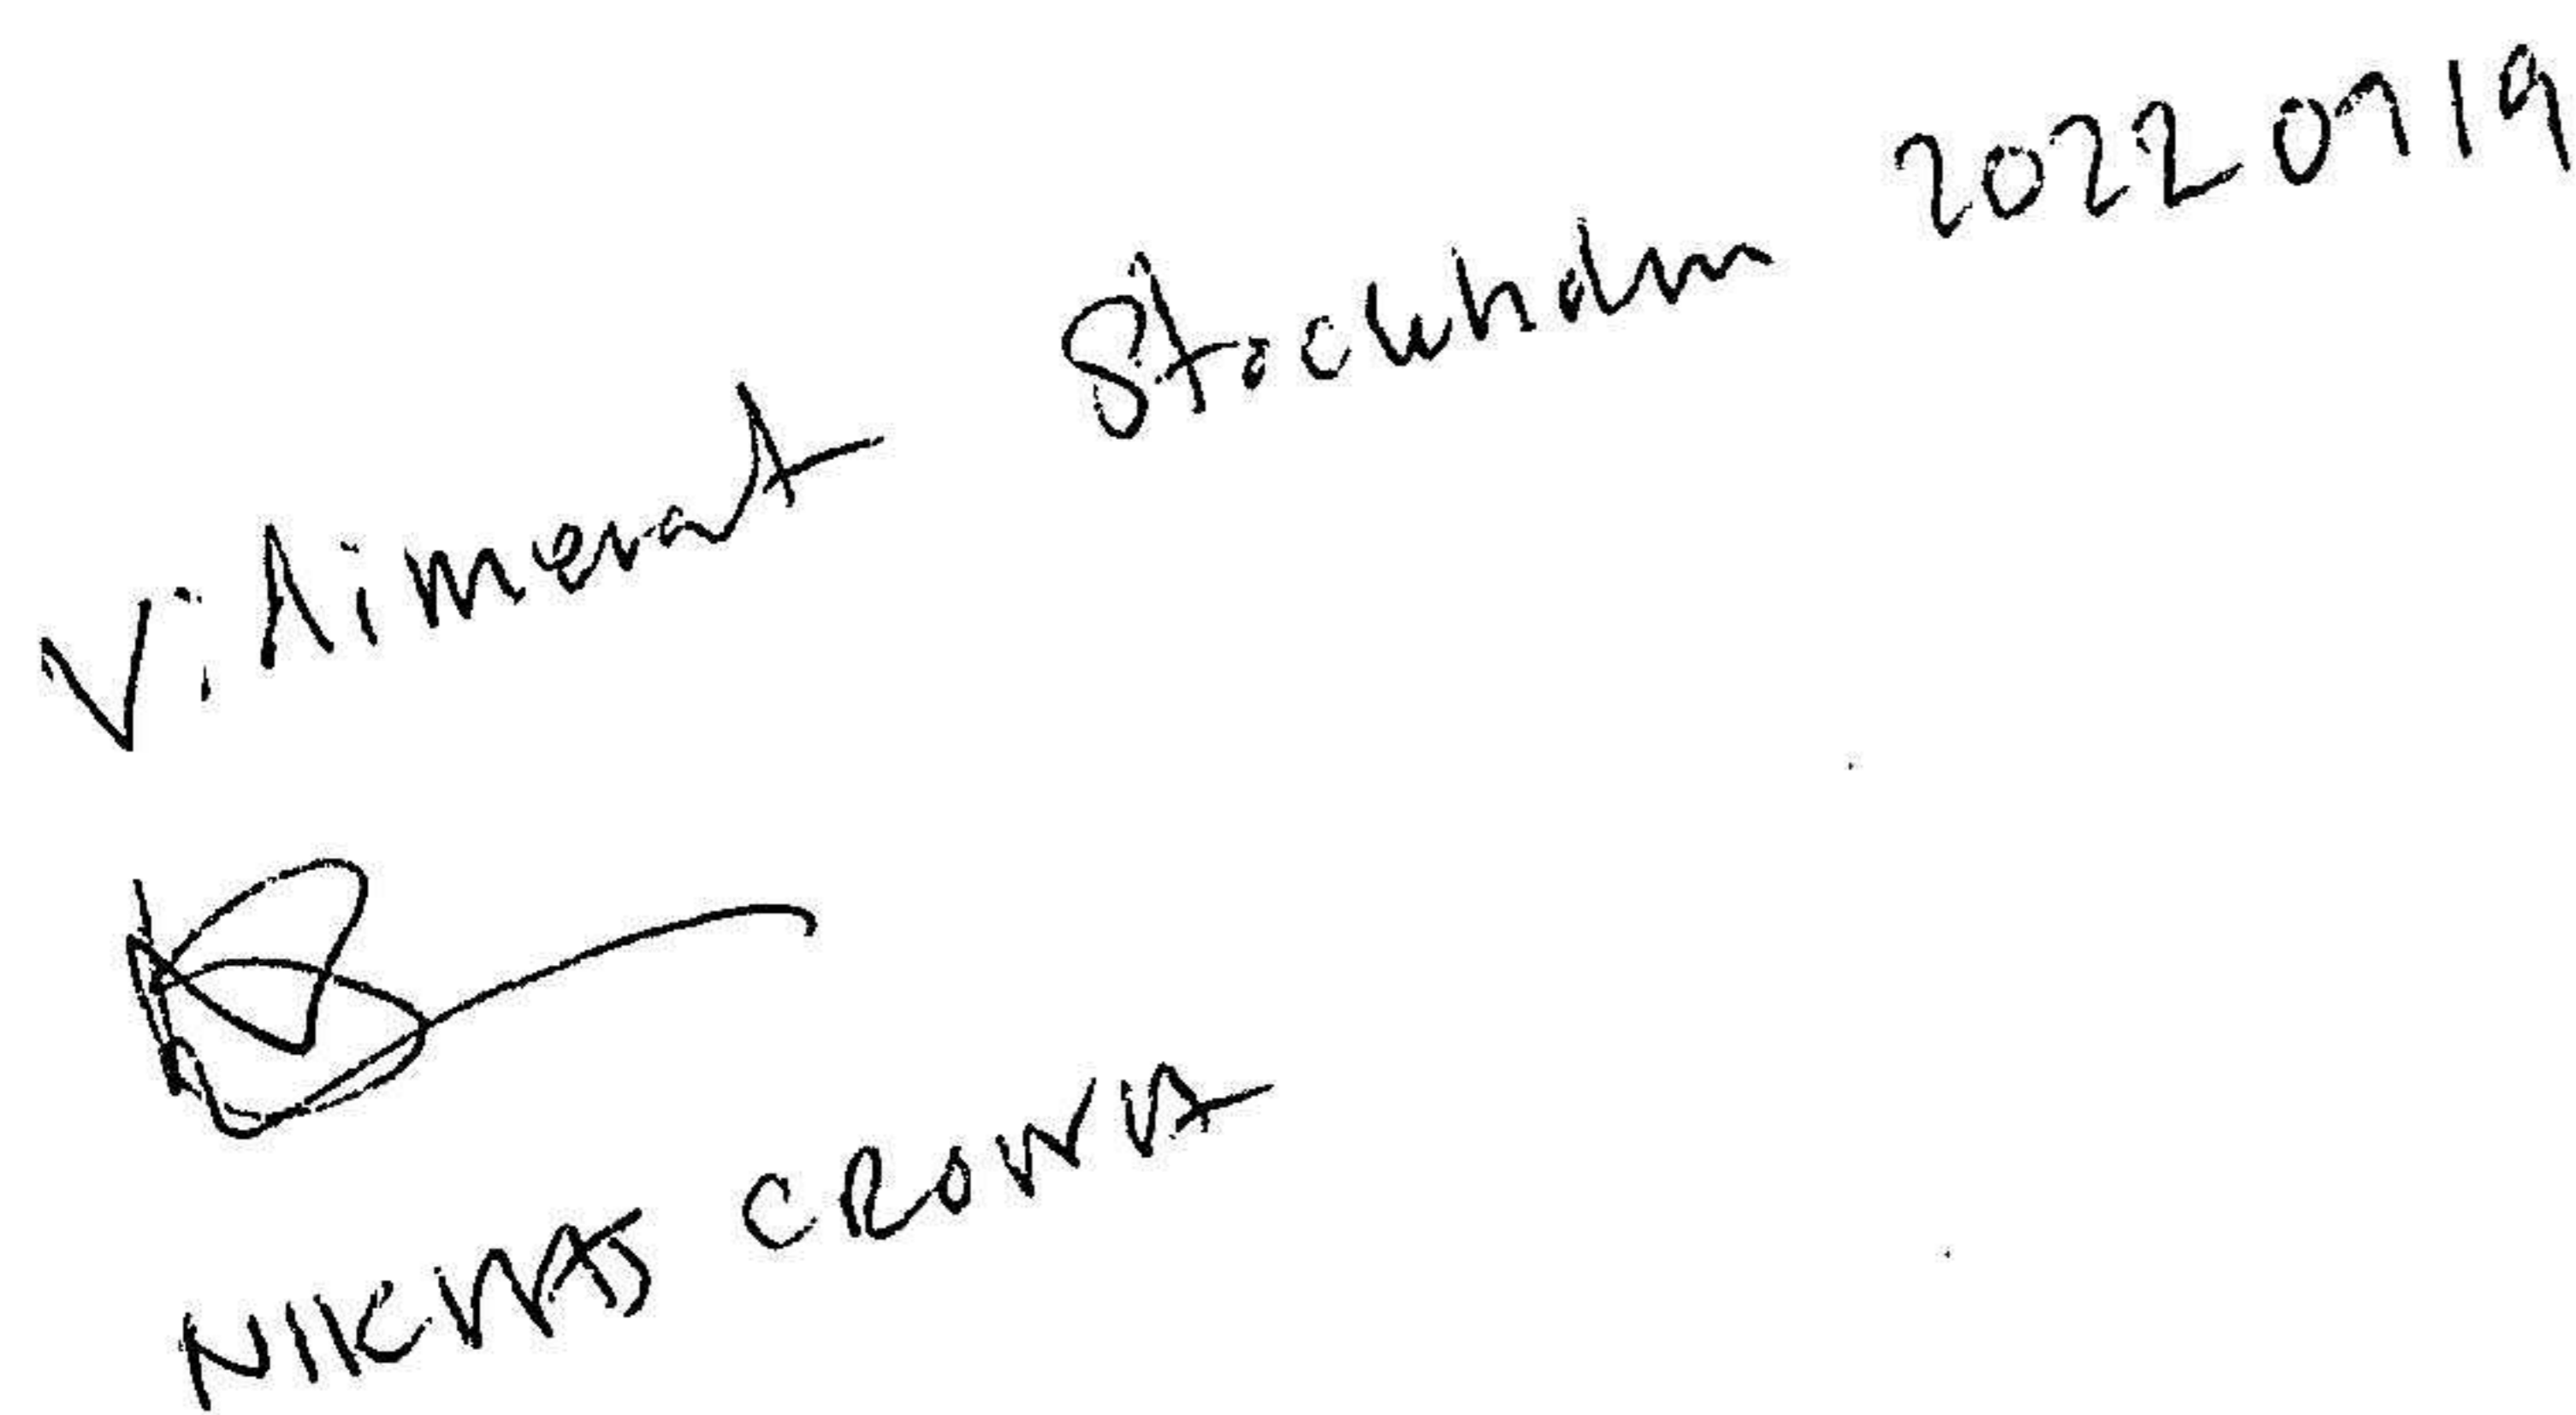 Vidimerat Stockholm 20220719
NIKLAS CRONA